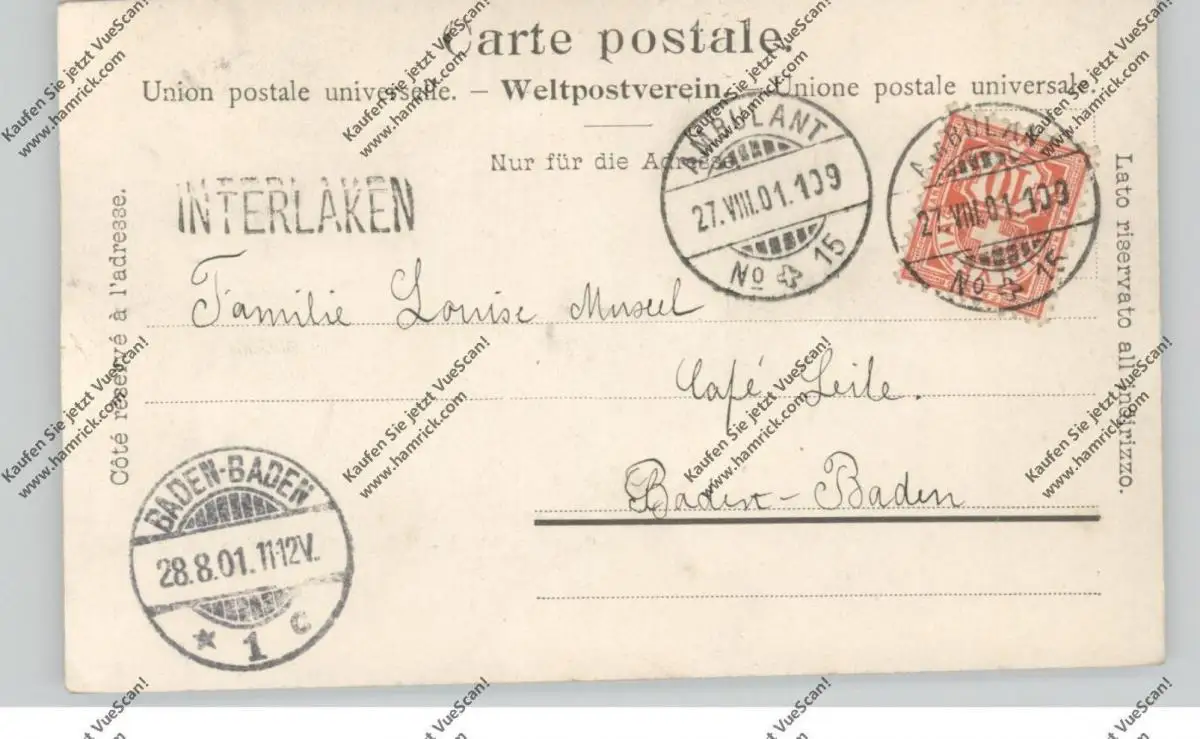 Carte postale.
Union postale universelle. – Weltpostverein. – Unione postale universale.
Nur für die Adresse.
INTERLAKEN
AMBULANT
27.VIII.01.109
No 15
AMBULANT
27.VIII.01.109
No 15
10
Côté réservé à l'adresse.
Lato riservato all'indirizzo.
Familie Louise
Café
Baden-Baden
BADEN-BADEN
28.8.01.11-12V.
* 1 c
Kaufen Sie jetzt VueScan!
www.hamrick.com